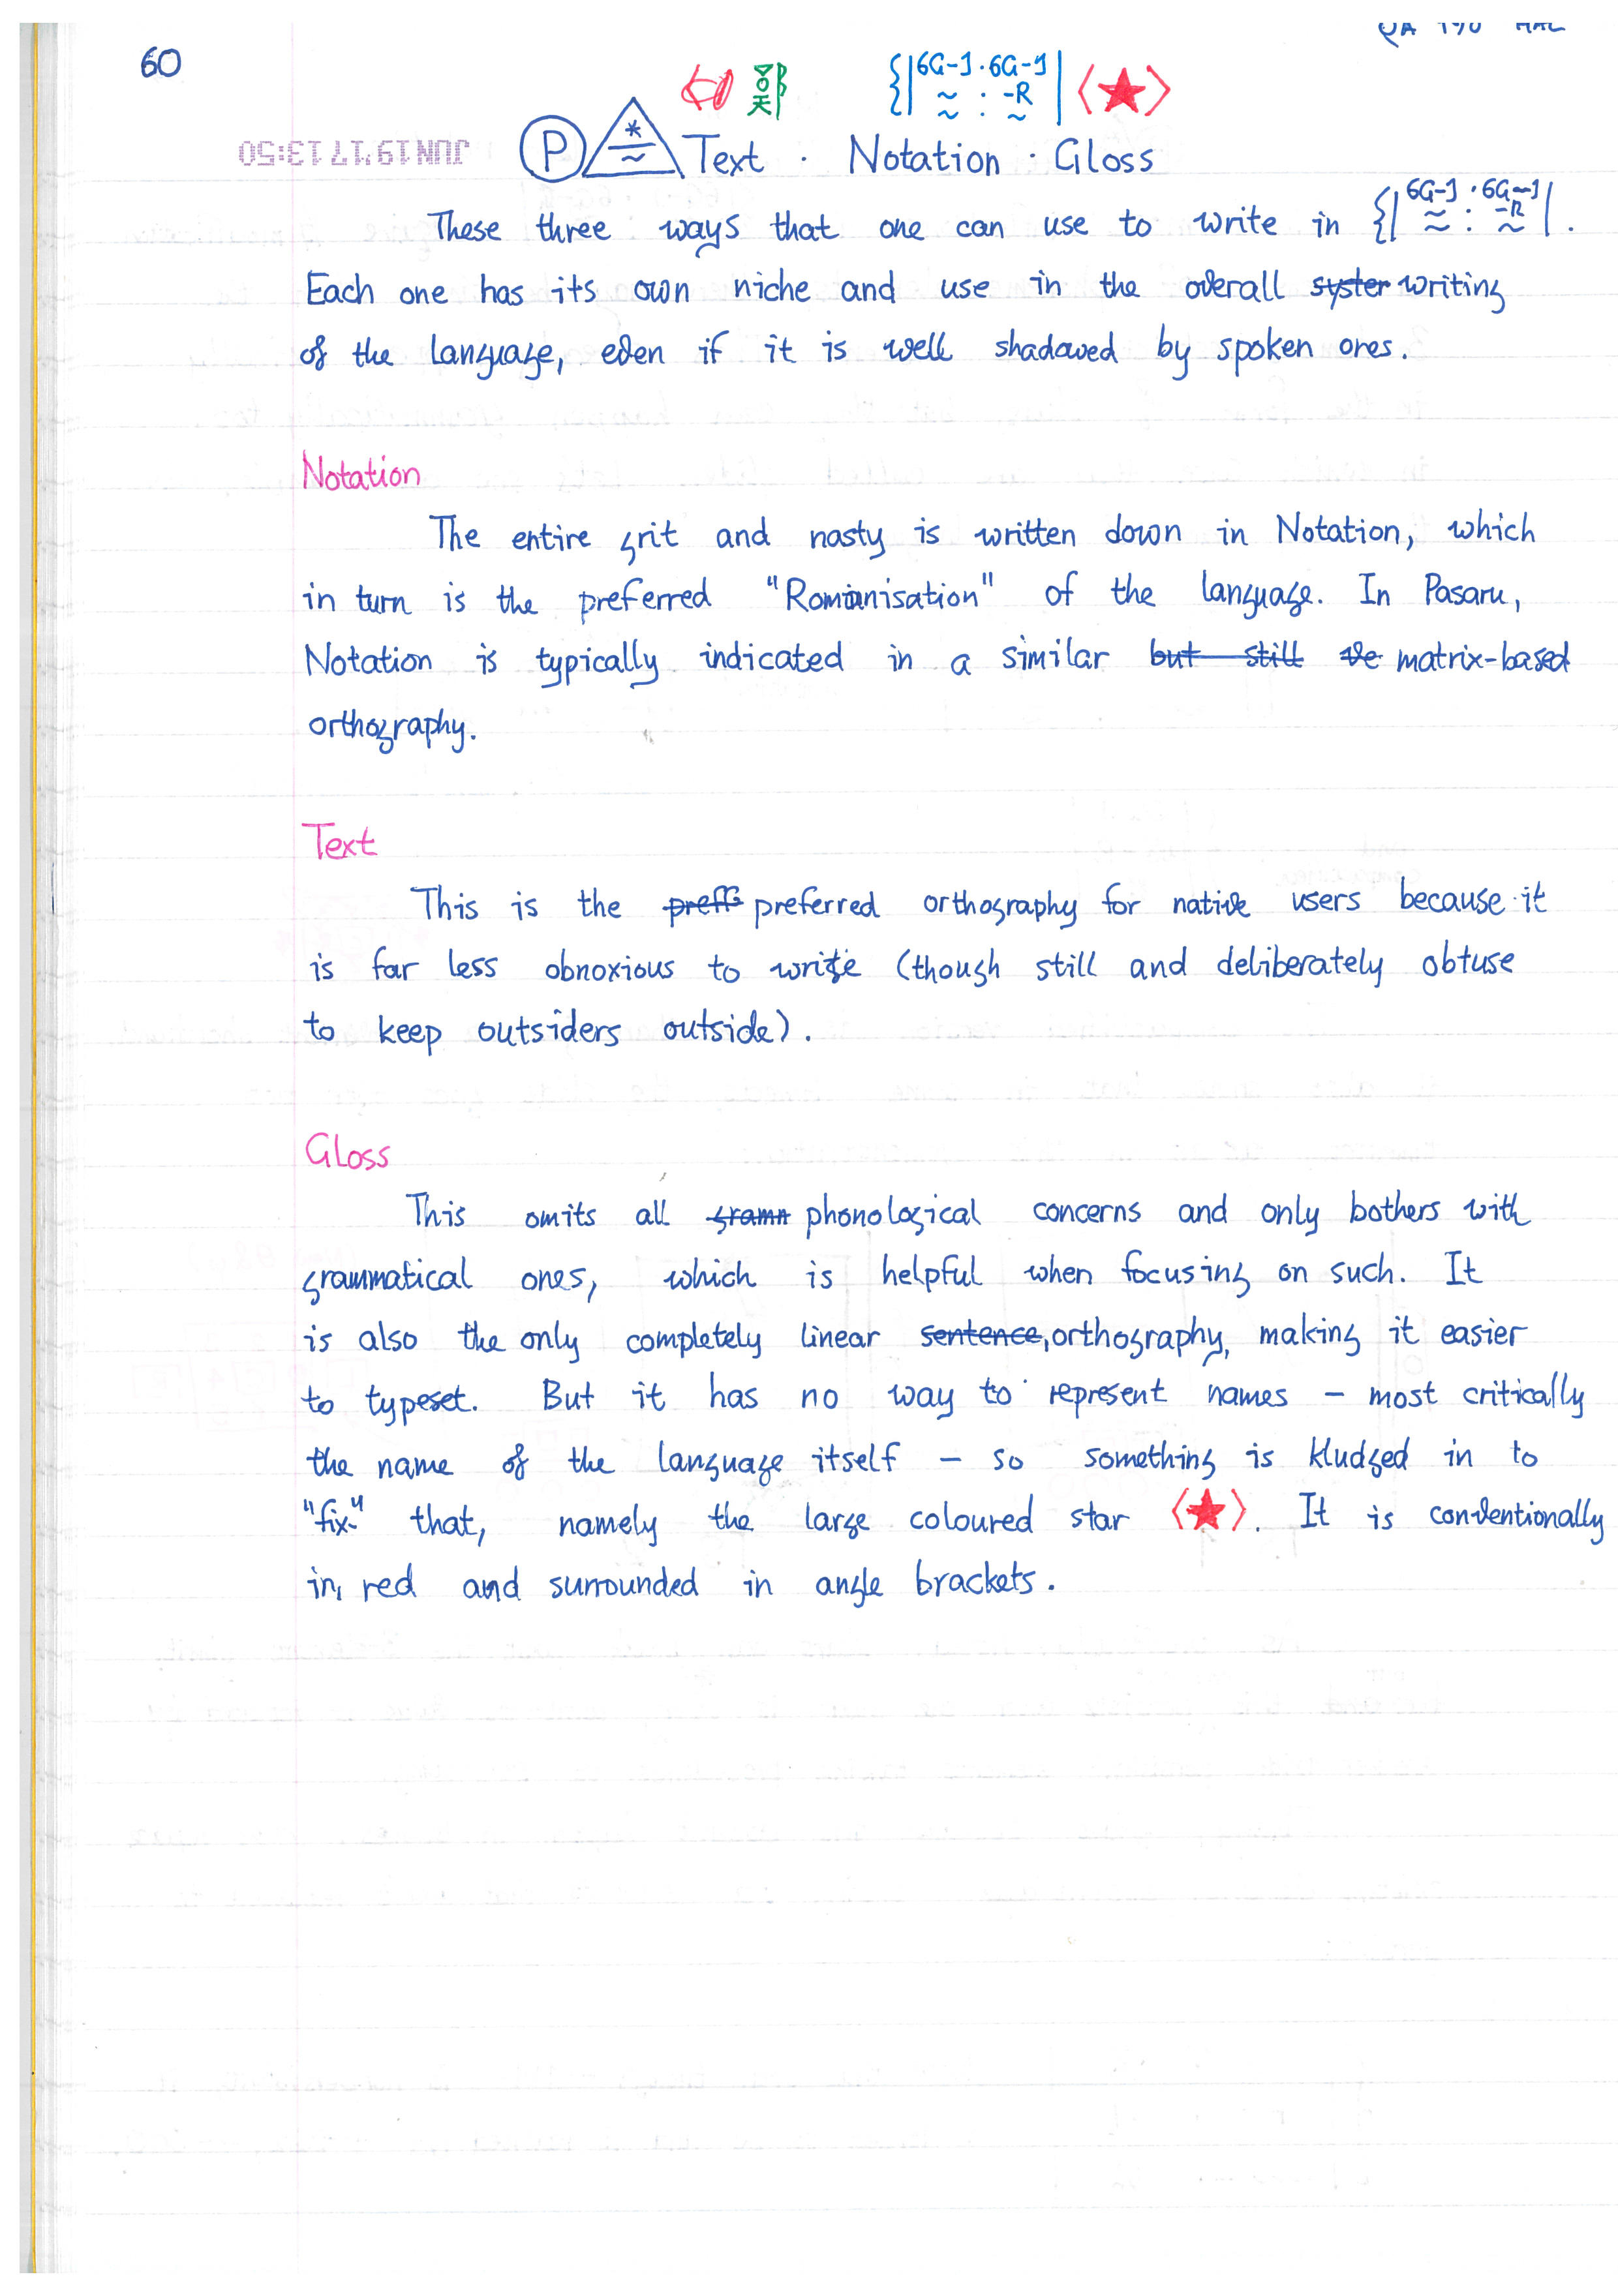 60
{|6G-1·6G-1 ≈ : -R ~| ⟨★⟩
JUN 19 '17 13:50
Ⓟ Text · Notation · Gloss
These three ways that one can use to write in {|6G-1·6G-1 ≈ : -R ~|.
Each one has its own niche and use in the overall syster writing
of the language, even if it is well shadowed by spoken ones.
Notation
The entire grit and nasty is written down in Notation, which
in turn is the preferred "Romanisation" of the language. In Pasaru,
Notation is typically indicated in a similar but still ve matrix-based
orthography.
Text
This is the preff preferred orthography for native users because it
is far less obnoxious to write (though still and deliberately obtuse
to keep outsiders outside).
Gloss
This omits all gramm phonological concerns and only bothers with
grammatical ones, which is helpful when focusing on such. It
is also the only completely linear sentence, orthography, making it easier
to typeset. But it has no way to represent names – most critically
the name of the language itself – so something is kludged in to
"fix" that, namely the large coloured star ⟨★⟩. It is conventionally
in red and surrounded in angle brackets.